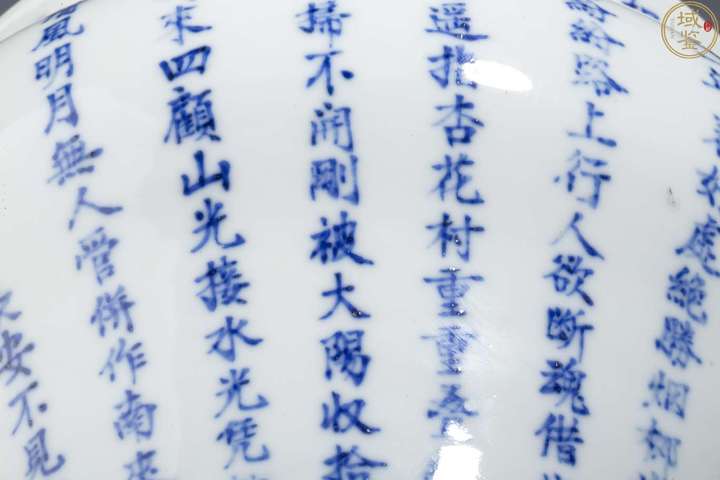 好處絶勝烟柳
紛路上行人欲斷魂借
遥指杏花村重重叠
掃不開剛被大陽收拾
來四顧山光接水光凭
風明月無人管併作南來
安不見
域鉴